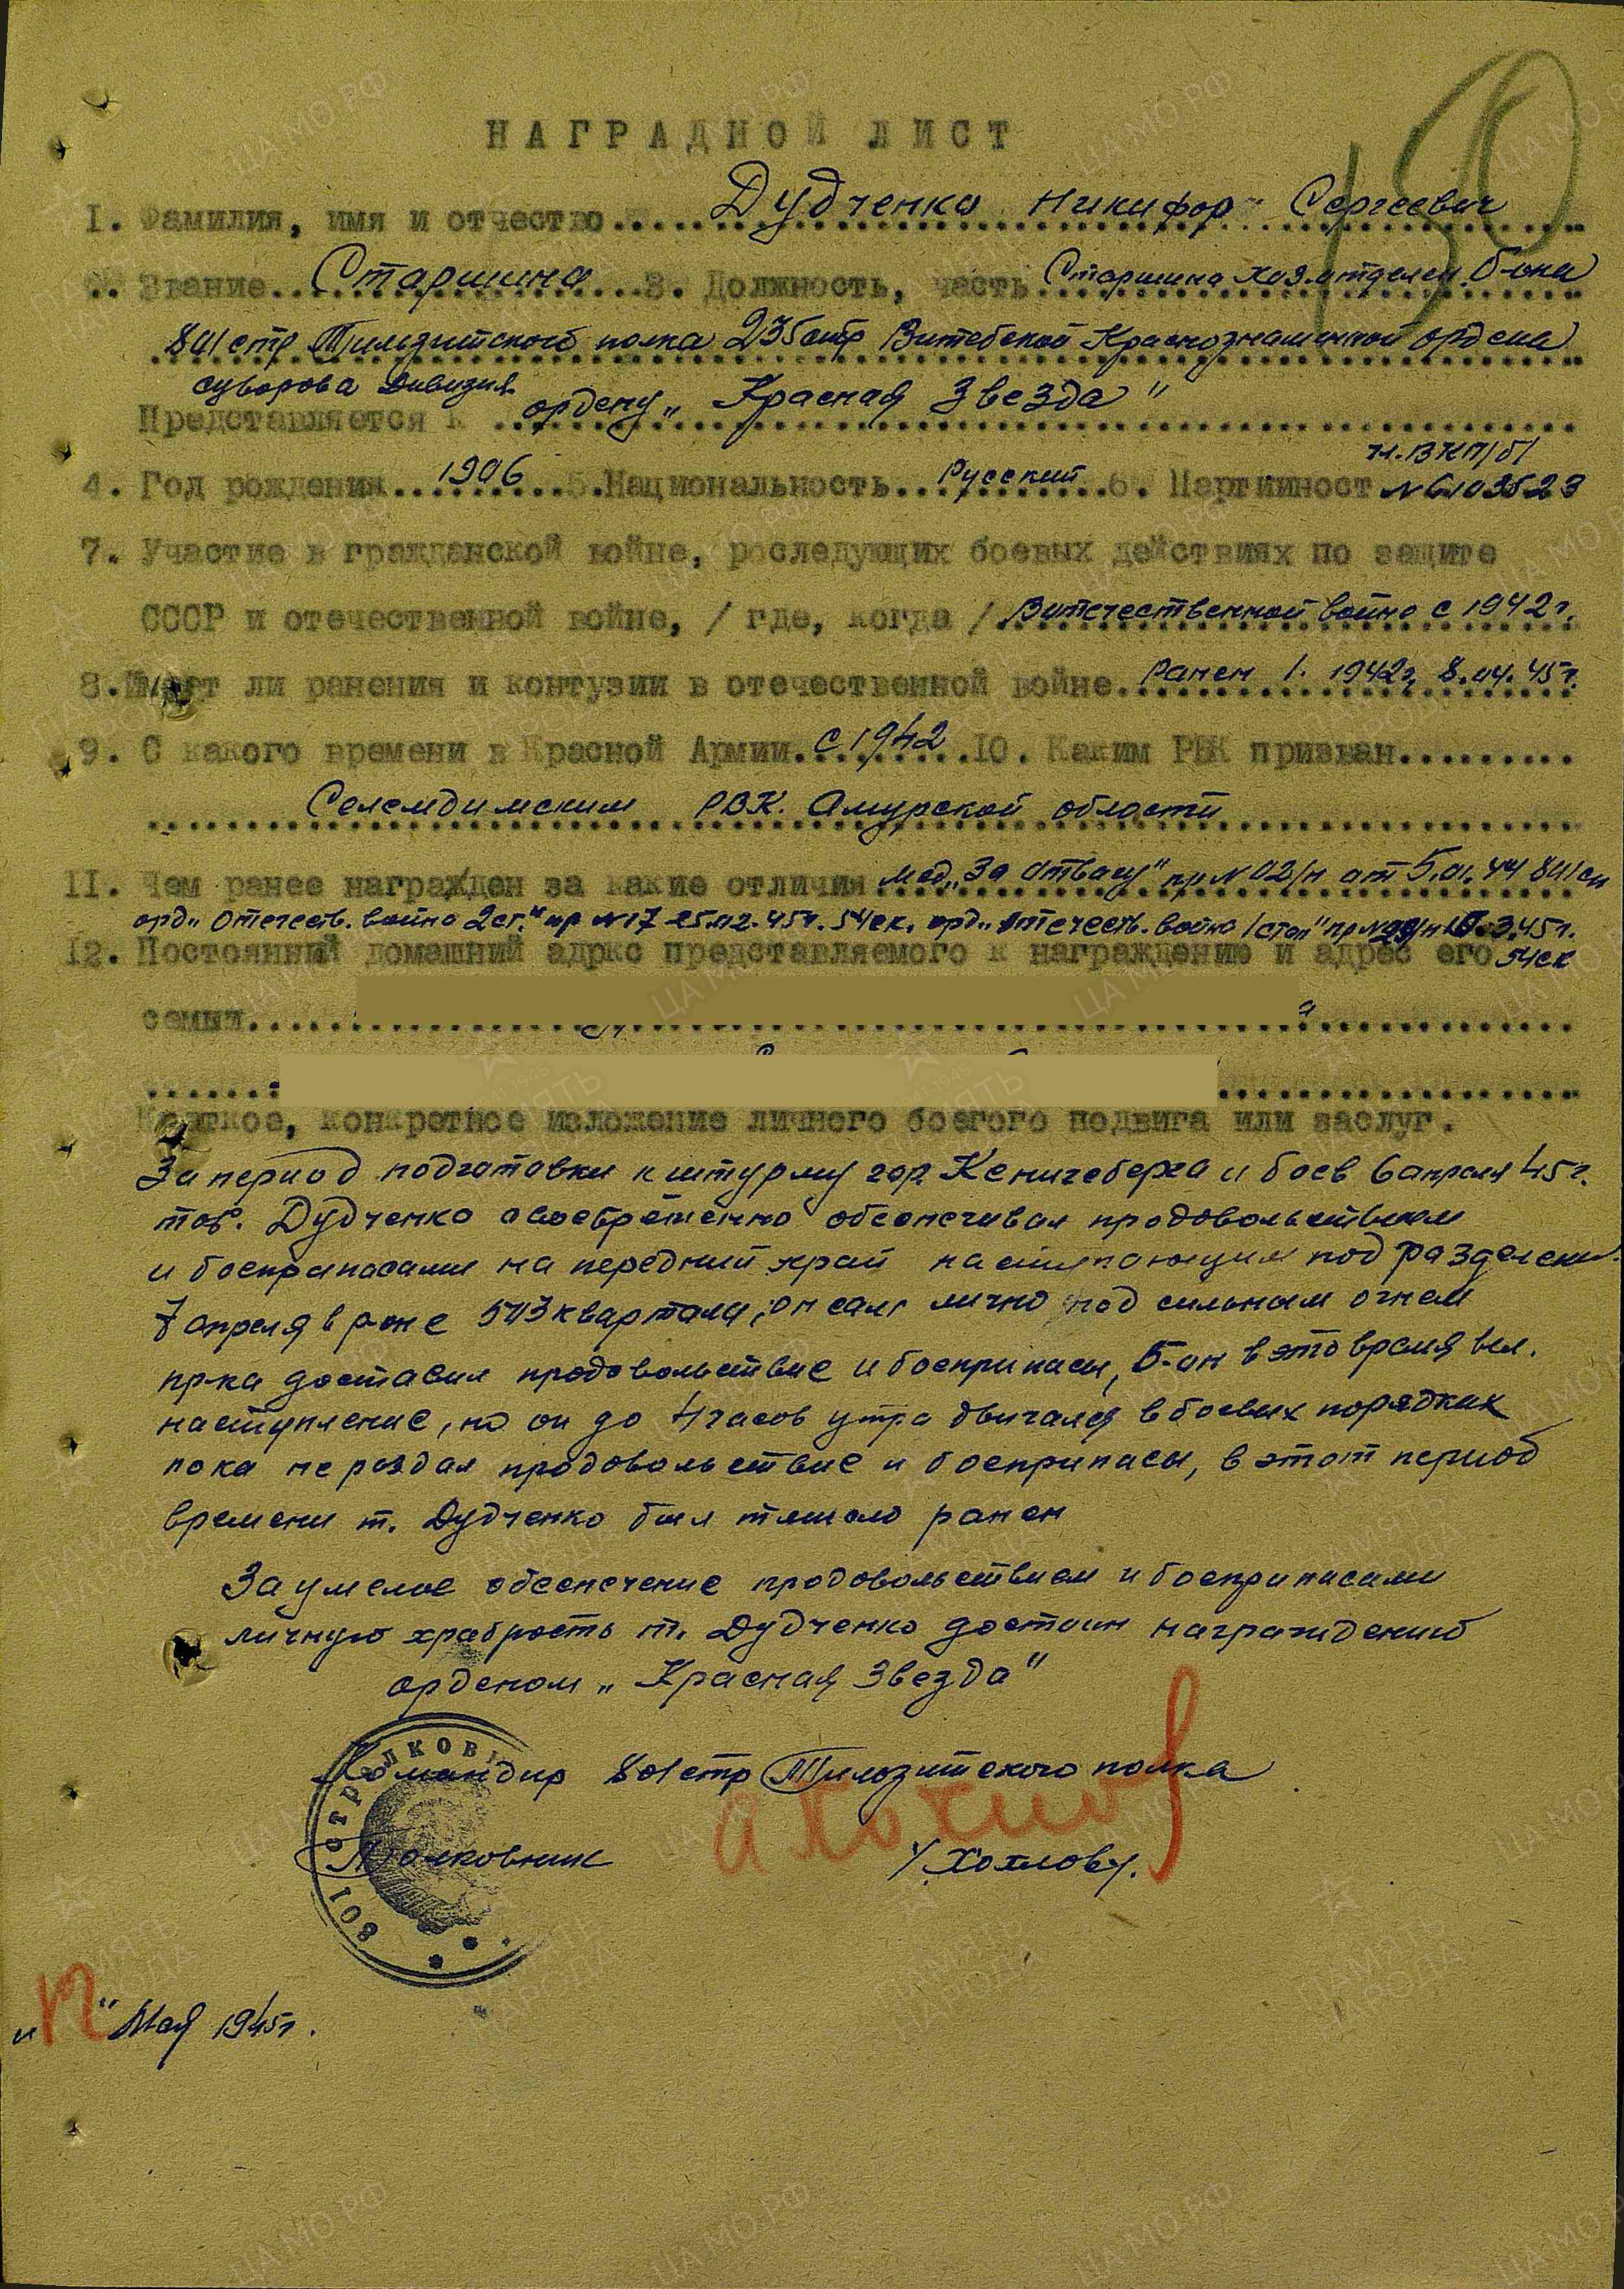 НАГРАДНОЙ ЛИСТ
190
1. Фамилия, имя и отчество Дудченко Никифор Сергеевич
Звание Старшина 3. Должность, часть Старшина хоз.отделен. б-она
801 стр Тильзитского полка 235 стр Витебской Краснознаменной ордена
Суворова Дивизия
Представляется к ордену „Красная Звезда"
чл. ВКП/б/
4. Год рождения 1906 5. Национальность Русский 6. Партийност № 6103523
7. Участие в гражданской войне, последующих боевых действиях по защите
СССР и отечественной войне, / где, когда / Вотечественной войне с 1942 г.
8. Имеет ли ранения и контузии в отечественной войне Ранен 1. 1942г, 8.04.45г.
9. С какого времени в Красной Армии с 1942 10. Каким РВК призван
Селемдимским РВК. Амурской области
11. Чем ранее награжден за какие отличия мед. „За отвагу" пр № 02/н от 5.01.44 801 сп
орд „Отечеств. война 2 ст." пр №17 25.02.45г. 54ск. орд. „Отечеств. война 1 степ" пр № 29/н 10.3.45г.
12. Постоянный домашний адркс представляемого к награждению и адрес его 54ск
семьи
Краткое, конкретное изложение личного боегого подвига или заслуг.
За период подготовки к штурму гор. Кенигсберга и боев 6 апреля 45 г.
тов. Дудченко своевременно обеспечивал продовольствием
и боеприпасами на передний край наступающим подразделени.
7 апреля в р-оне 503 квартала, он сам лично под сильным огнем
пр-ка доставил продовольствие и боеприпасы, Б-он в это время вел.
наступление, но он до 4 часов утра двигался в боевых порядках
пока не раздал продовольствие и боеприпасы, в этот период
времени т. Дудченко был тяжело ранен
За умелое обеспечение продовольствием и боеприпасами
личную храбрость т. Дудченко достоин награждению
орденом „Красная Звезда"
Командир 801 стр Тильзитского полка
Полковник /Хохлов/.
801 СТРЕЛКОВЫ
„12" Мая 1945г.
ЦА МО РФ
ПАМЯТЬ НАРОДА